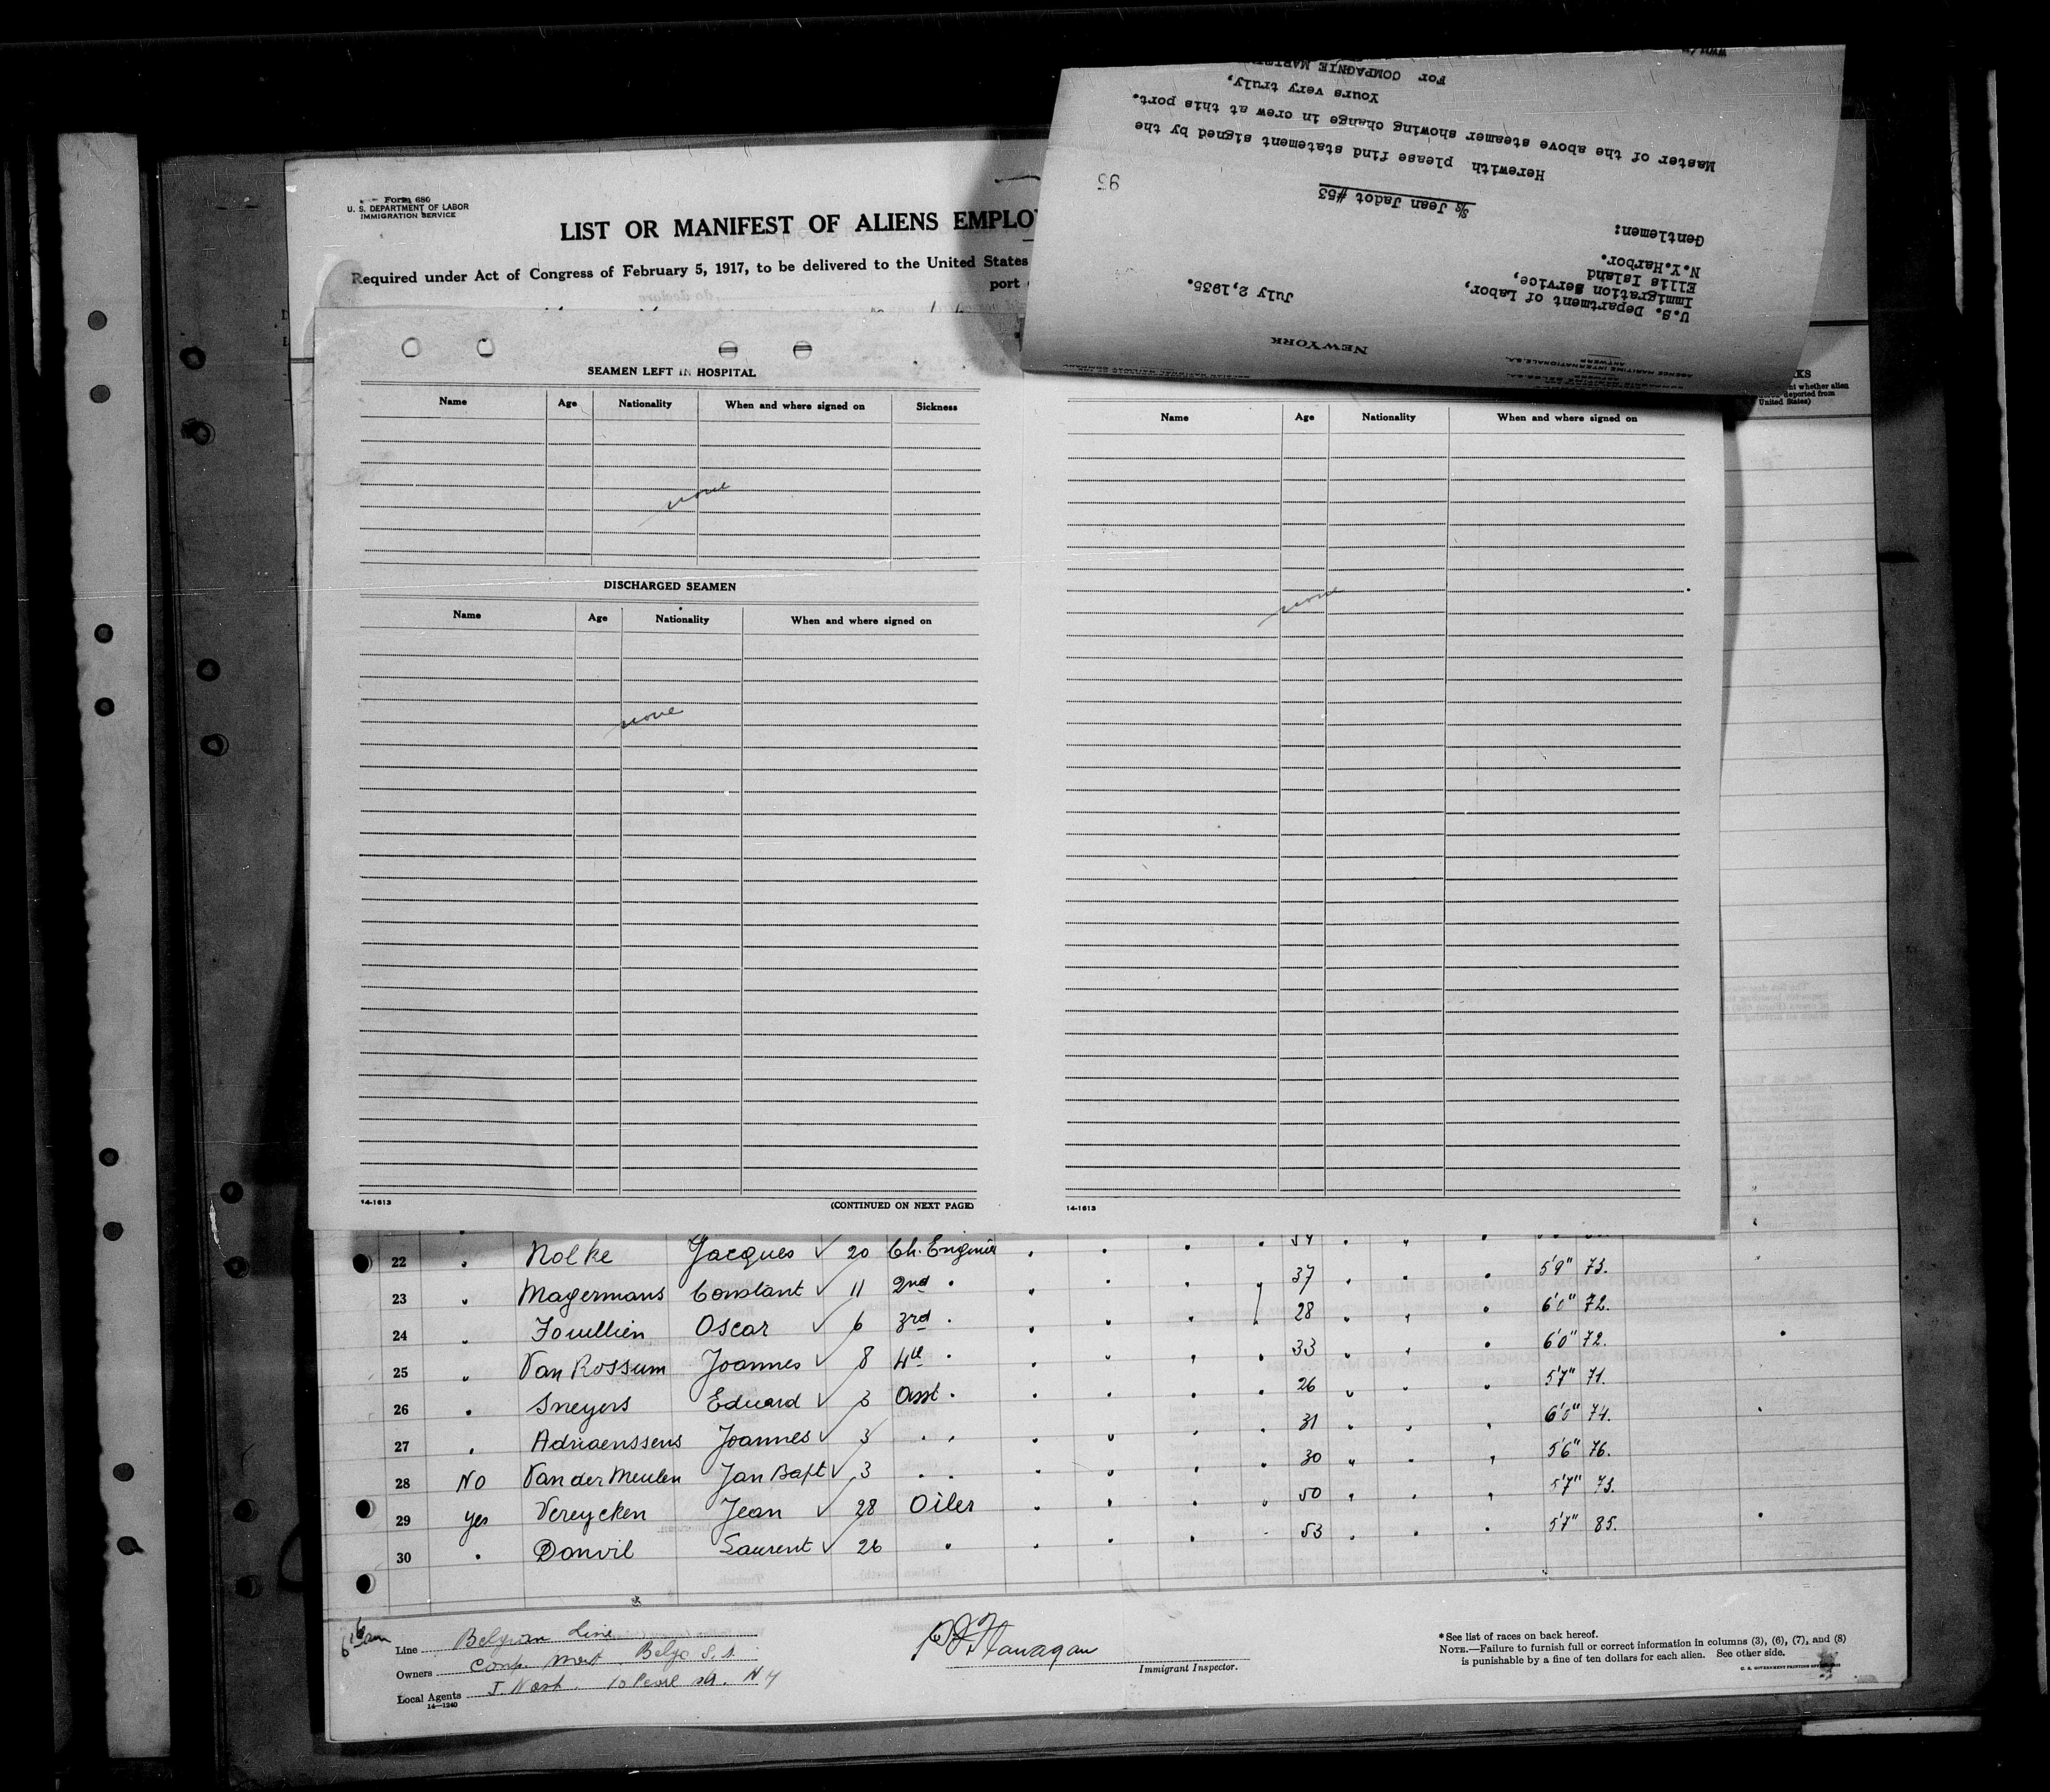 Form 680
U. S. DEPARTMENT OF LABOR
IMMIGRATION SERVICE
LIST OR MANIFEST OF ALIENS EMPLO
Required under Act of Congress of February 5, 1917, to be delivered to the United States
port
For COMPAGNIE
Yours very truly,
Master of the above steamer showing change in crew at this port.
Herewith please find statement signed by the
95
S/S Jean Jadot #53
Gentlemen:
N.Y.Harbor.
Ellis Island
Immigration Service,
U.S. Department of Labor,
July 2, 1935.
NEW YORK
ANTWERP
AGENCE MARITIME INTERNATIONALE, S.A.
KS
whether alien
deported from
United States)
SEAMEN LEFT IN HOSPITAL
Name Age Nationality When and where signed on Sickness
none
DISCHARGED SEAMEN
Name Age Nationality When and where signed on
none
14-1613 (CONTINUED ON NEXT PAGE)
Name Age Nationality When and where signed on
none
14-1613
22 " Nolke Jacques ✓ 20 Ch. Engineer " " " " 54 " " "
23 " Magermans Constant ✓ 11 2nd " " " " " 37 " " " 5'9" 73.
24 " Fouillien Oscar ✓ 6 3rd " " " " " 28 " " " 6'0" 72.
25 " Van Rossum Joannes ✓ 8 4th " " " " " 33 " " " 6'0" 72.
26 " Sneyers Eduard ✓ 3 Asst " " " " " 26 " " " 5'7" 71.
27 " Adriaenssens Joannes ✓ 3 " " " " " " 31 " " " 6'0" 74.
28 No Van der Meulen Jan Bapt ✓ 3 " " " " " " 30 " " " 5'6" 76.
29 Yes Vereycken Jean ✓ 28 Oiler " " " " 50 " " " 5'7" 73.
30 " Donvil Laurent ✓ 26 " " " " " 53 " " " 5'7" 85.
Line Belgian Line
Owners Comp. Mart. Belge S. A.
Local Agents J. Nash. 10 Pearl str. N Y
14—1240
Flanagan
Immigrant Inspector.
* See list of races on back hereof.
NOTE.—Failure to furnish full or correct information in columns (3), (6), (7), and (8)
is punishable by a fine of ten dollars for each alien. See other side.
U. S. GOVERNMENT PRINTING OFFICE